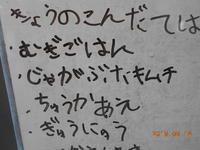 きょうのこんだては
・むぎごはん
・じゃがぶたキムチ
・ちゅうかあえ
・ぎゅうにゅう